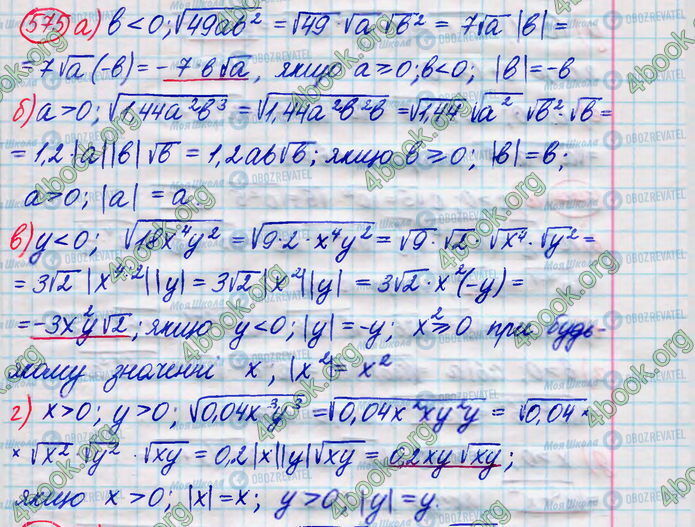 575 а) b < 0; √49ab² = √49 · √a √b² = 7√a |b| =
= 7√a (-b) = -7b√a, якщо a ≥ 0; b < 0; |b| = -b
б) a > 0; √1,44a²b³ = √1,44a²b²b = √1,44 √a² · √b² · √b =
= 1,2 · |a||b| √b = 1,2ab√b; якщо b ≥ 0; |b| = b;
a > 0; |a| = a.
в) y < 0; √18x⁴y² = √9·2·x⁴y² = √9 · √2 · √x⁴ · √y² =
= 3√2 |x^4:2||y| = 3√2 |x²||y| = 3√2 · x²(-y) =
= -3x²y√2; якщо y < 0; |y| = -y; x² ≥ 0 при будь-
якому значенні x; |x²| = x²
г) x > 0; y > 0; √0,04x³y³ = √0,04x²xy²y = √0,04 ×
× √x² √y² · √xy = 0,2|x||y|√xy = 0,2xy√xy;
якщо x > 0; |x| = x; y > 0; |y| = y.